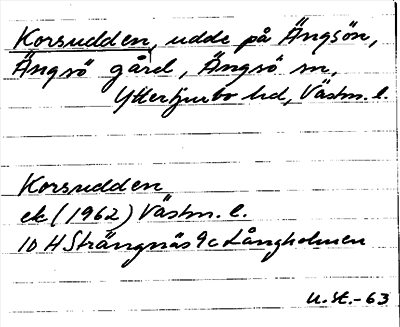 Korsudden, udde på Ängsön,
Ängsö gård, Ängsö sn,
Yttertjurbo hd, Västm. l.
Korsudden
ek (1962) Västm. l.
10 H Strängnäs 9c Långholmen
U.St.-63